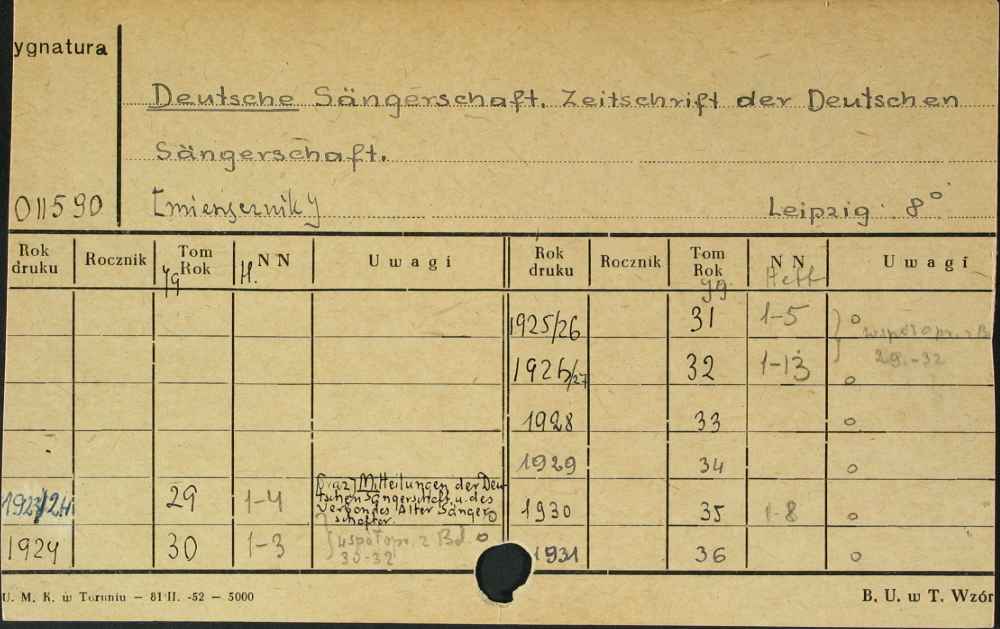 ygnatura
Deutsche Sängerschaft. Zeitschrift der Deutschen
Sängerschaft.
011590 Leipzig 8°
Rok druku Rocznik Tom Rok Jg N N H. Uwagi Rok druku Rocznik Tom Rok Jg N N Heft Uwagi
1925/26 31 1-5 o współopr. z B
1926/27 32 1-13 o 29.-32
1928 33 o
1929 34 o
1923/24 29 1-4 Mitteilungen der Deu-
tschen Sängerschaft u. des
Verbandes Alter Sänger
schafter. o
1930 35 1-8 o
1924 30 1-3 współopr. z Bd. o
30-32
1931 36 o
U. M. K. w Toruniu – 81 II. -52 – 5000 B. U. w T. Wzór